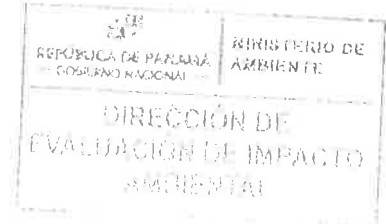 REPÚBLICA DE PANAMÁ
— GOBIERNO NACIONAL —
MINISTERIO DE
AMBIENTE
DIRECCIÓN DE
EVALUACIÓN DE IMPACTO
AMBIENTAL